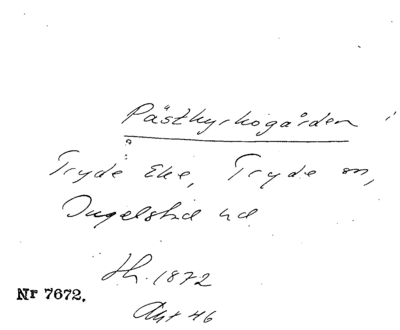 Pästkyrkogården i
Tryde Eke, Tryde sn,
Ingelstad hd
Hh. 1872
Nr 7672.
Akt 46